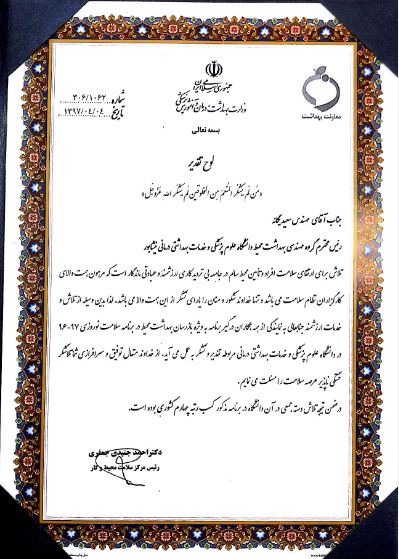 جمهوری اسلامی ایران
وزارت بهداشت، درمان و آموزش پزشکی
معاونت بهداشت
شماره ۳۰۶/۱۰۶۲
تاریخ ۱۳۹۷/۰۴/۰۴
بسمه تعالی
لوح تقدیر
«مَن لَم یَشکُرِ المُنعِمَ مِنَ المَخلوقینَ لَم یَشکُرِ اللهَ عَزَّوَجَلَّ»
جناب آقای مهندس سعید یگانه
رئیس محترم گروه مهندسی بهداشت محیط دانشگاه علوم پزشکی و خدمات بهداشتی درمانی نیشابور
تلاش برای ارتقای سلامت افراد و تامین محیط سالم در جامعه بی تردید کاری ارزشمند و عبادتی ماندگار است که مرهون همت والای
کارگزاران نظام سلامت می باشد و تنها خداوند شکور و منان را یارای تشکر از این همت والا می باشد. لذا بدین وسیله از تلاش و
خدمات ارزشمند جنابعالی به نمایندگی از همه همکاران درگیر برنامه به ویژه بازرسان بهداشت محیط در برنامه سلامت نوروزی ۹۷-۹۶
در دانشگاه علوم پزشکی و خدمات بهداشتی درمانی مربوطه تقدیر و تشکر به عمل می آید. از خداوند متعال توفیق و سرافرازی شما تلاشگر
خستگی ناپذیر عرصه سلامت را مسئلت می نمایم.
در ضمن نتیجه تلاش دسته جمعی در آن دانشگاه در برنامه مذکور کسب رتبه چهارم کشوری بوده است.
دکتر احمد جنیدی جعفری
رئیس مرکز سلامت محیط و کار